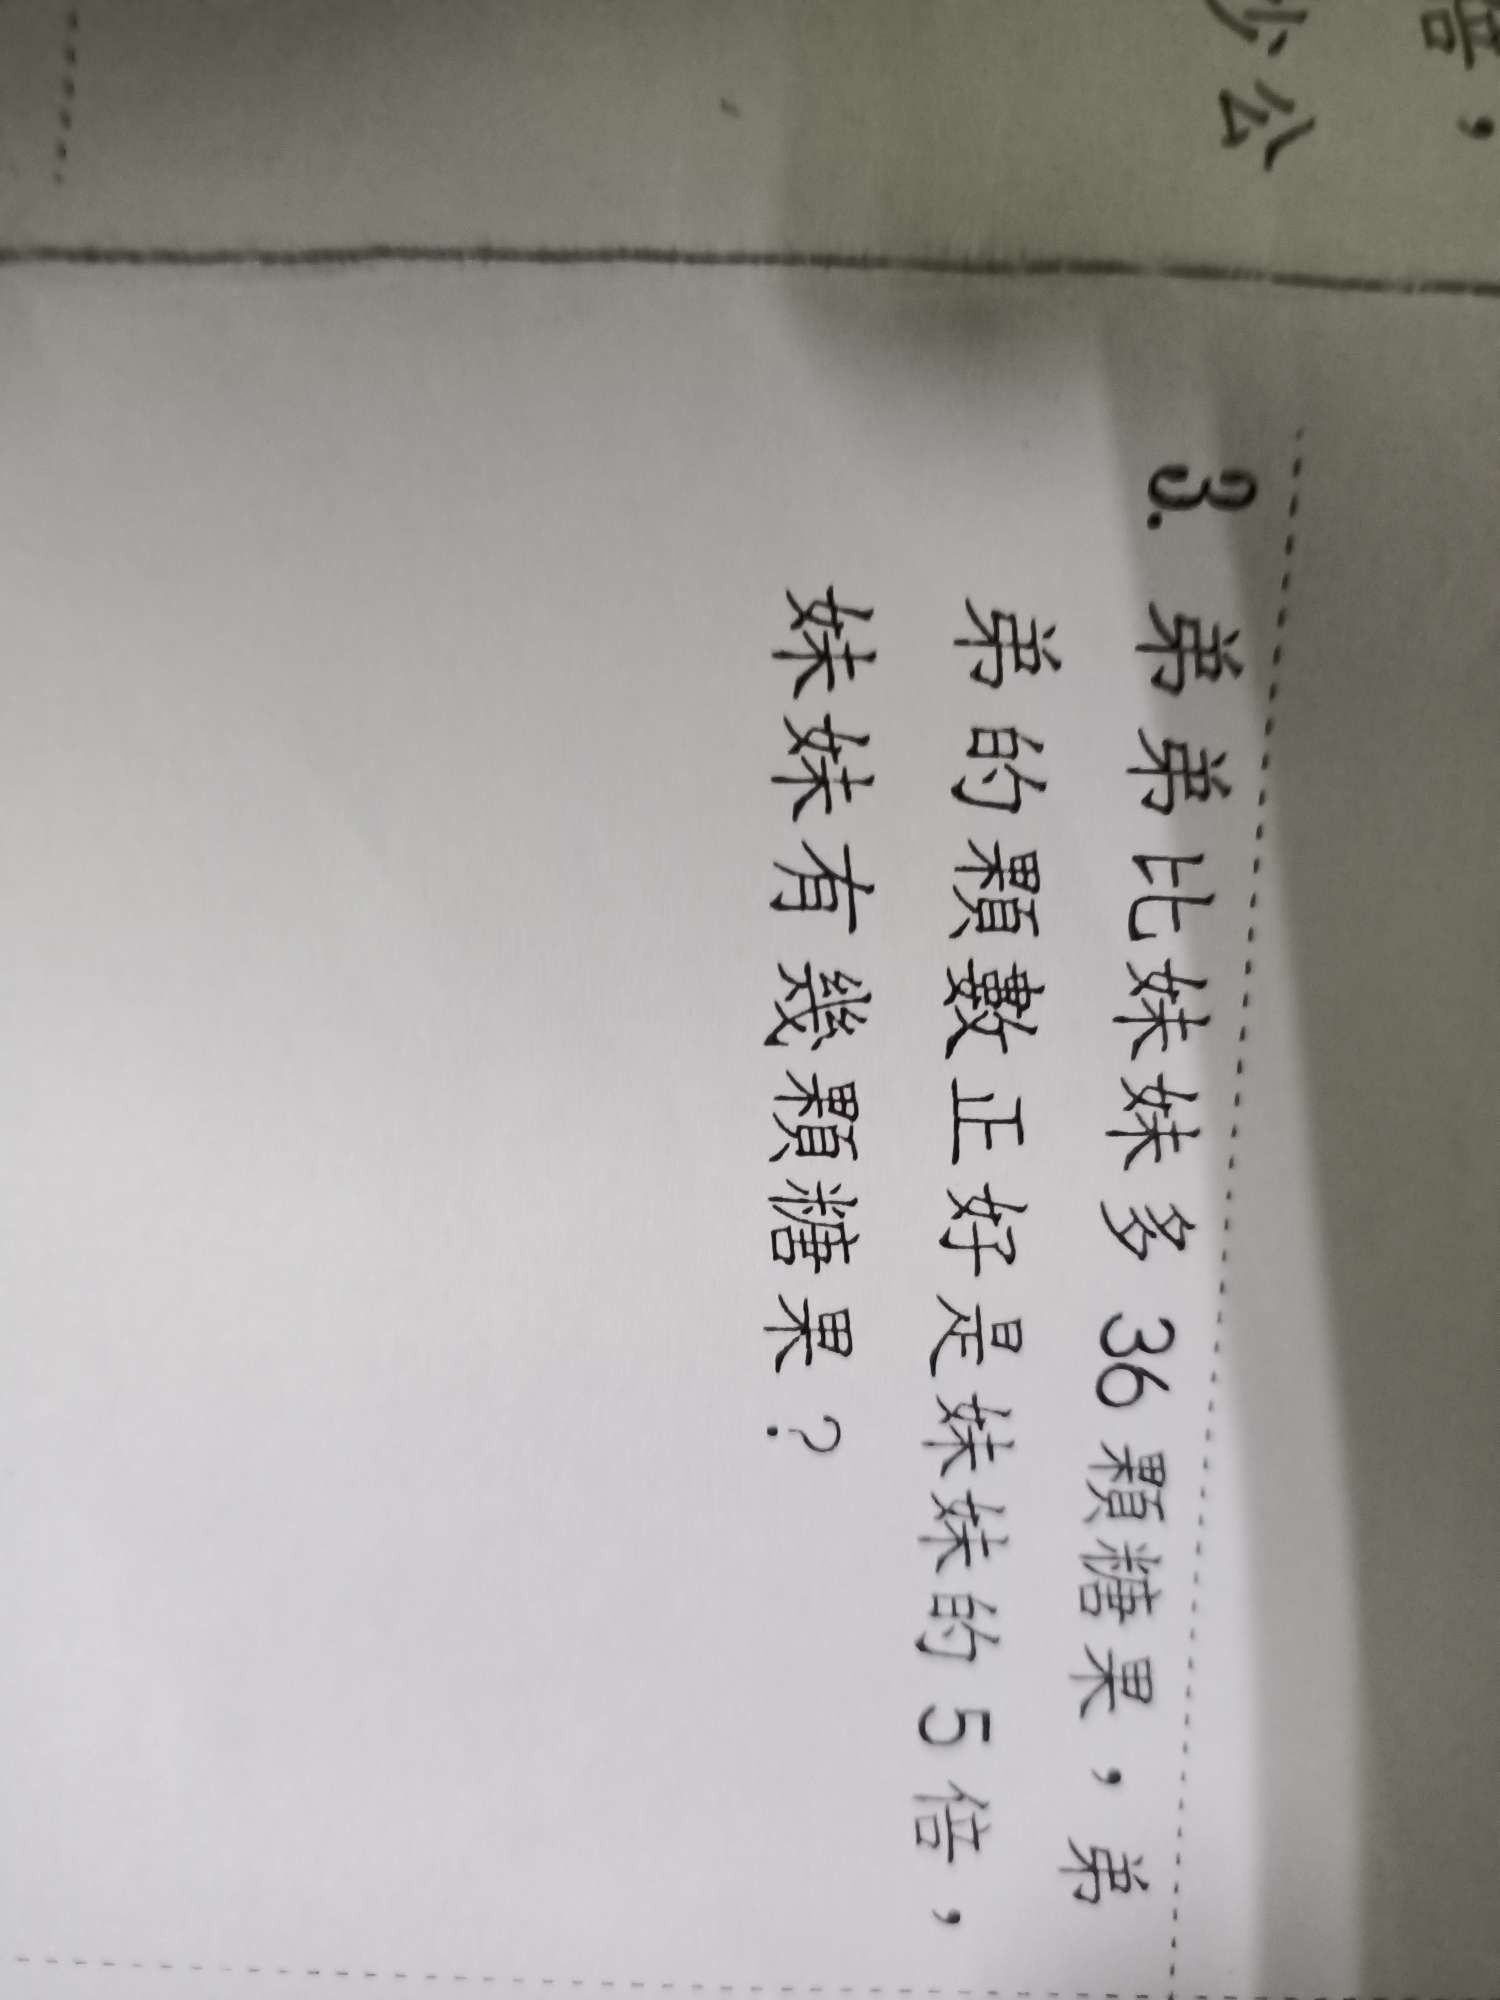 少公
3. 弟弟比妹妹多 36 顆糖果，弟
弟的顆數正好是妹妹的 5 倍，
妹妹有幾顆糖果？